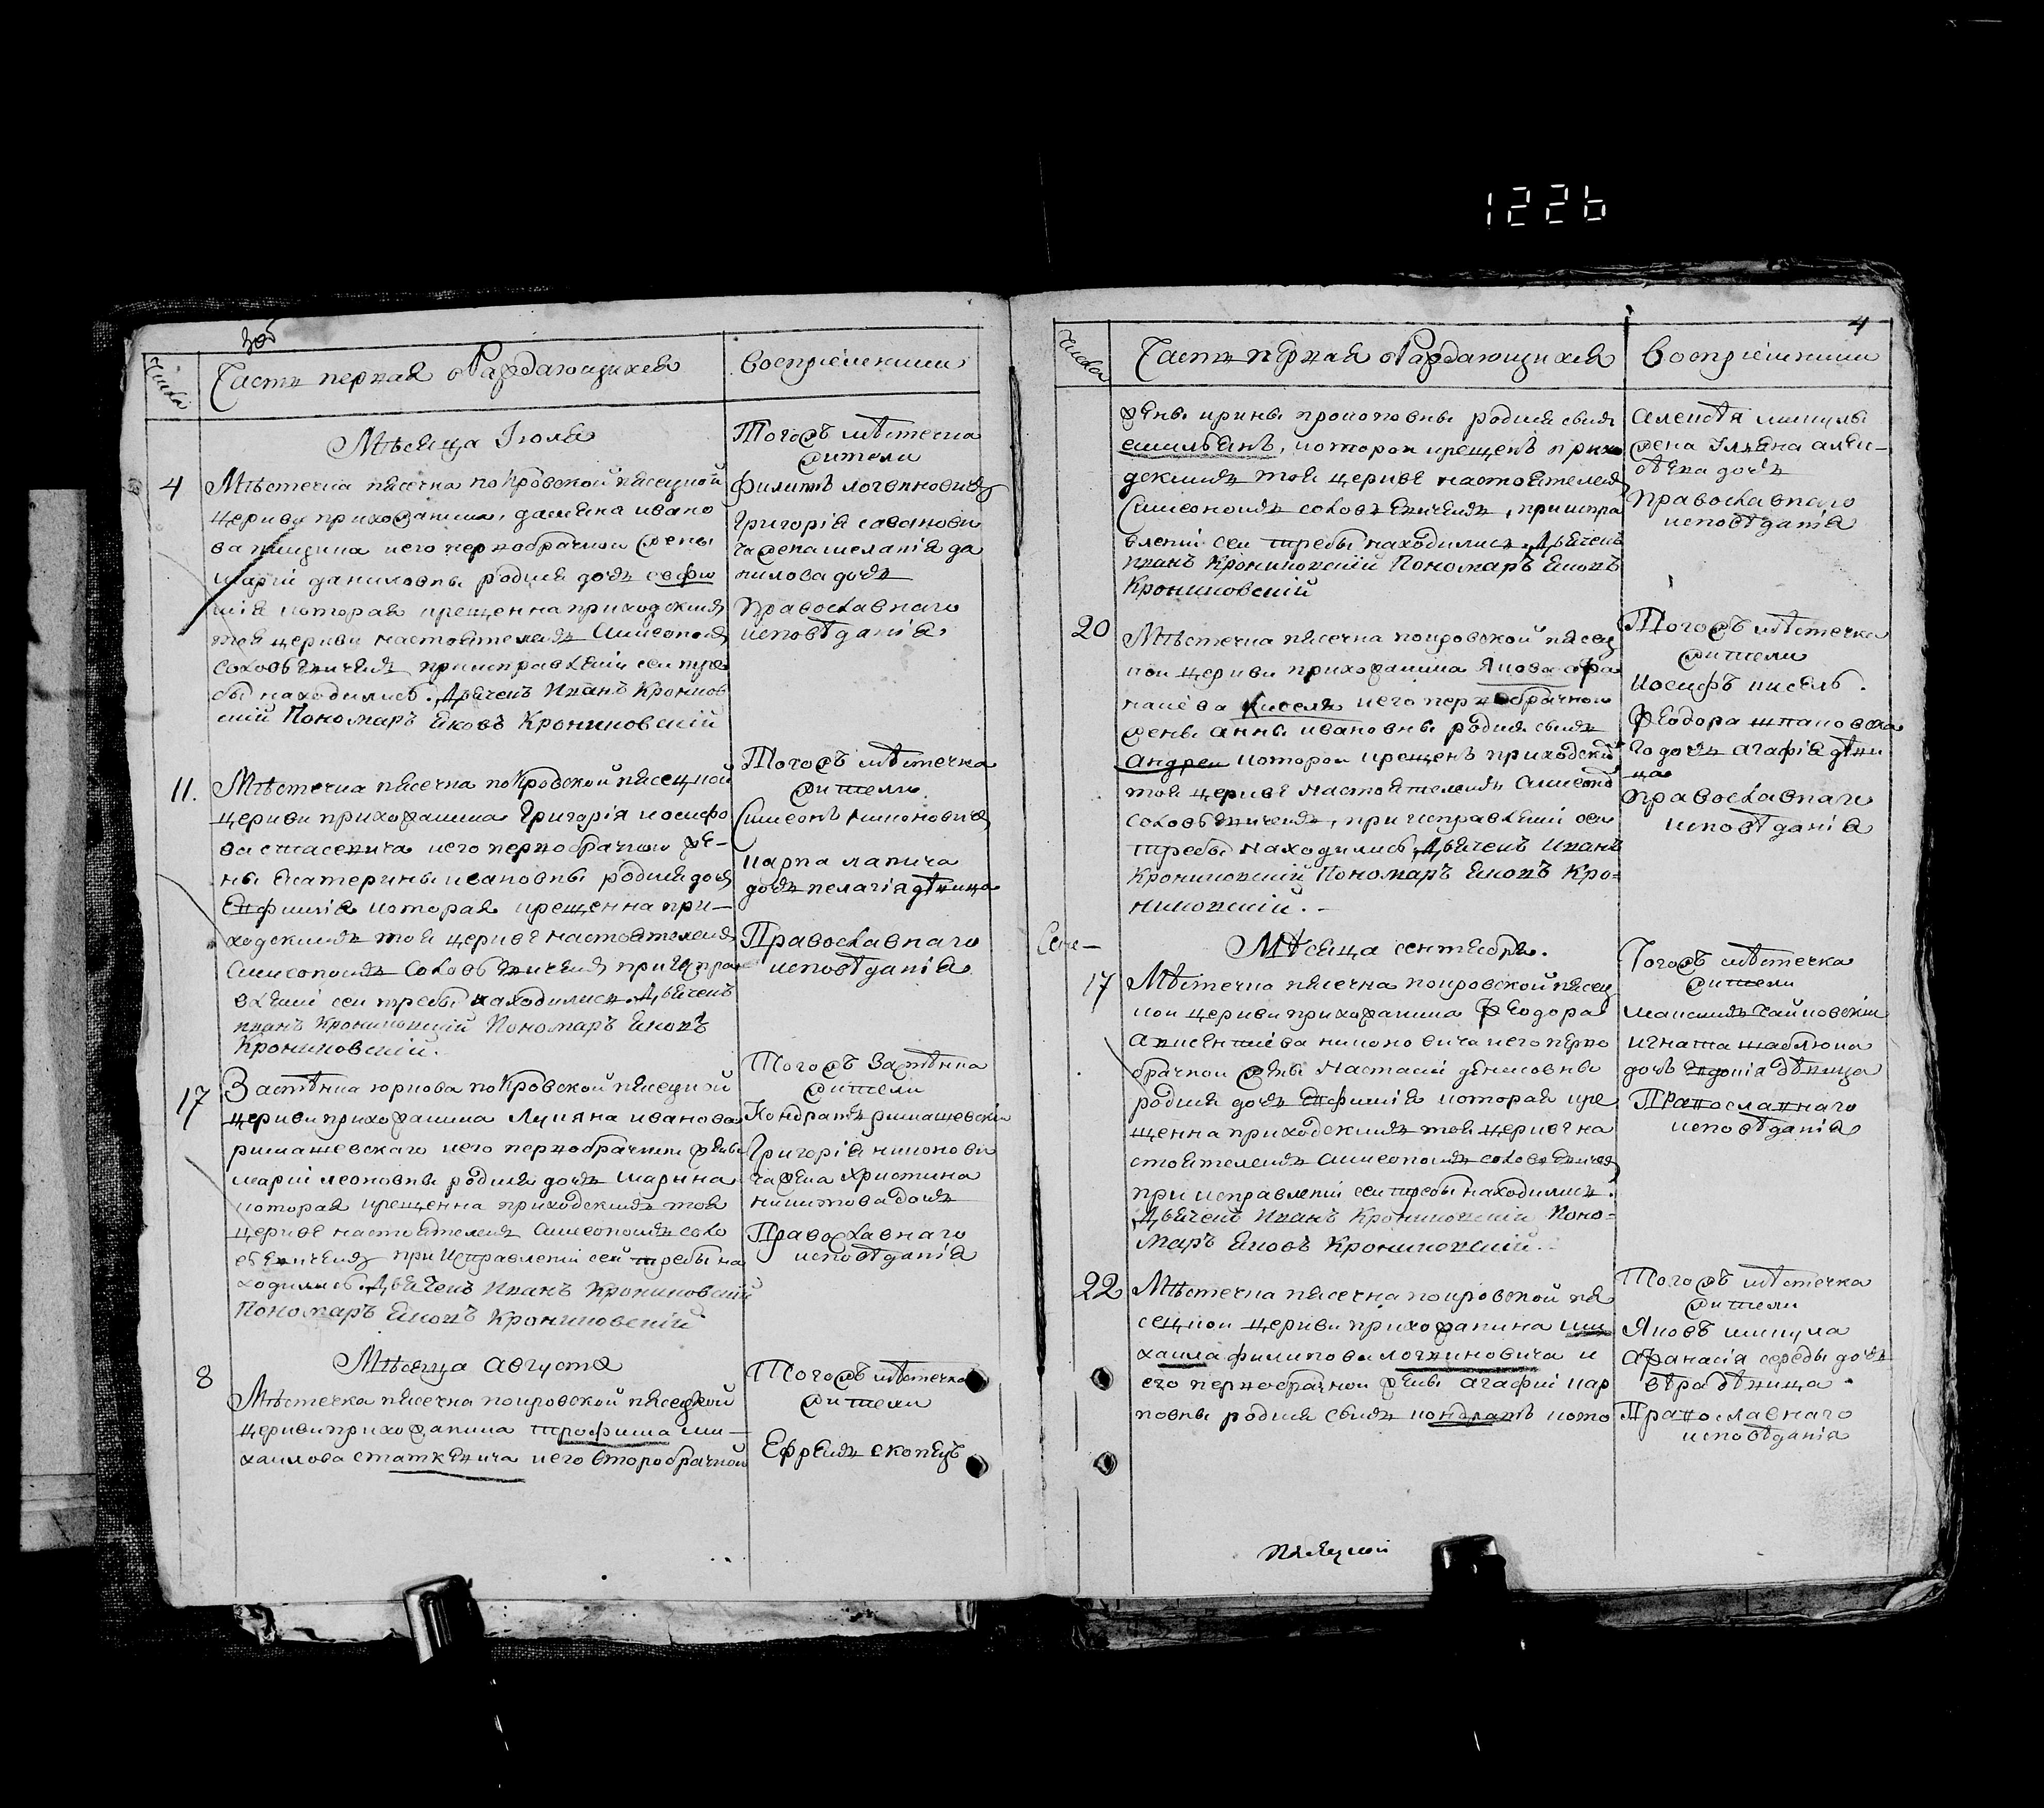 1226
3об
Числа
Часть первая о Раждающихся
воспріемники
Мѣсяца Іюля
4
Мѣстечка пясечна покровской пясецкой
церкви прихожанина, дамяна ивано
ва пицина иего первобрачной жены
маріи даниловны родися дочь евфи
мія которая крещенна приходскимъ
тоя церкви настоятелемъ Симеономъ
Соловьевичемъ приисправленіи сеи тре
бы находились. Дьячекъ Иванъ Кроников
скій Пономаръ Яковъ Крониковскій
Тогожъ мѣстечка
жители
Филипъ логвиновичъ
Григорія савонови
ча жена меланія да
нилова дочь
Православнаго
исповѣданія.
11.
Мѣстечка пясечна покровской пясецкой
церкви прихожанина Григорія иосифо
ва стасевича иего первобрачной же-
ны Екатерины ивановны родися дочь
Евфимія которая крещенна при-
ходскимъ тоя церкве настоятелемъ
Симеономъ Соловьевичемъ прииспра
вленіи сеи требы находились. Дьячекъ
Иванъ Крониковскій Пономаръ Яковъ
Крониковскій.
Тогожъ мѣстечка
жители.
Симеонъ никоновичъ
карпа лапича
дочь пелагія дѣвица
Православнаго
исповѣданія
17
Застѣнка юркова покровской пясецкой
церкви прихожанина Лукяна иванова
римашевскаго иего первобрачной жены
маріи леоновны родися дочь марина
которая крещенна приходскимъ тоя
церкве настоятелемъ Симеономъ соло
вьевичемъ приисправленіи сей требы на
ходились. Дьячекъ Иванъ Крониковскій
Пономаръ Яковъ Крониковскій
Тогожъ Застѣнка
жители
Кондратъ римашевскій
Григорія никонови
ча жена христина
никитова дочь
Православнаго
исповѣданія
Мѣсяца августа
8
Мѣстечка пясечна покровской пясецкой
церкви прихожанина трофима ми-
хаилова статкевича иего второбрачной
Тогожъ мѣстечка
жители
Ефремъ скопецъ
4
Числа
Часть первая о Раждающихся
воспріемники
жены ирины прокоповны родися сынъ
емильянъ, которои крещенъ прихо
дскимъ тоя церкве настоятелемъ
Симеономъ соловьевичемъ, приипра
вленіи сеи требы находились. Дьячекъ
Иванъ Крониковскій Пономаръ Яковъ
Крониковскій
алексѣя микулы
жена Ульяна алек-
сѣева дочь
Православнаго
исповѣданія
20
Мѣстечка пясечна покровской пясец
кои церкви прихожанина Якова афа
насіева киселя иего первобрачнои
жены анны ивановны родися сынъ
Андреи которои крещенъ приходски
тоя церкве настоятелемъ Симеоно
соловьевичемъ, при исправленіи сеи
требы находились, Дьячекъ Иванъ
Крониковскій Пономаръ Яковъ Кро=
никовскій. -
Тогожъ мѣстечка
жители
Иосифъ кисель.
Феодора шпаковска
го дочь агафія дѣви
ца
Православнаго
исповѣданія
Сен-
Мѣсяца сентября.
17
Мѣстечка пясечна покровской пясец
кои церкви прихожанина Феодора
Авксентіева никоновича иего перво
брачнои жены Настасіи денисовны
родися дочь Евфимія которая кре
щенна приходскимъ тоя церкве на
стоятелемъ Симеономъ соловьевичемъ
при исправленіи сеи требы находились.
Дьячекъ Иванъ Крониковскій Поно=
маръ Яковъ Крониковскій.
Тогожъ мѣстечка
жители
максимъ чайковскій
игната шаблюка
дочь Евдокія дѣвица
Православнаго
исповѣданія
22
Мѣстечка пясечна покровской пя
сецкои церкви прихожанина ми
хаила филипова логвиновича и
его первобрачнои жены агафіи кар
повны родися сынъ кондратъ кото
Тогожъ мѣстечка
жители
Яковъ микула
афанасія середы дочь
вѣра дѣвица.
Православнаго
исповѣданія
Пясецкой